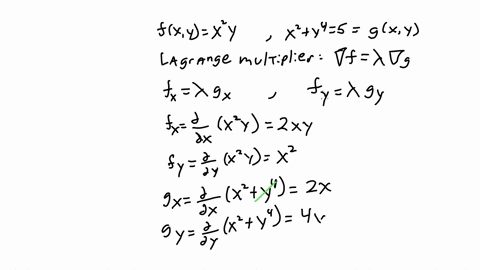 f(x,y)=x²y , x²+y⁴=5=g(x,y)
LAgrange multiplier: ∇f=λ∇g
fₓ=λgₓ , f_y=λg_y
fₓ=∂/∂x(x²y)=2xy
f_y=∂/∂y(x²y)=x²
gₓ=∂/∂x(x²+y⁴)=2x
g_y=∂/∂y(x²+y⁴)=4